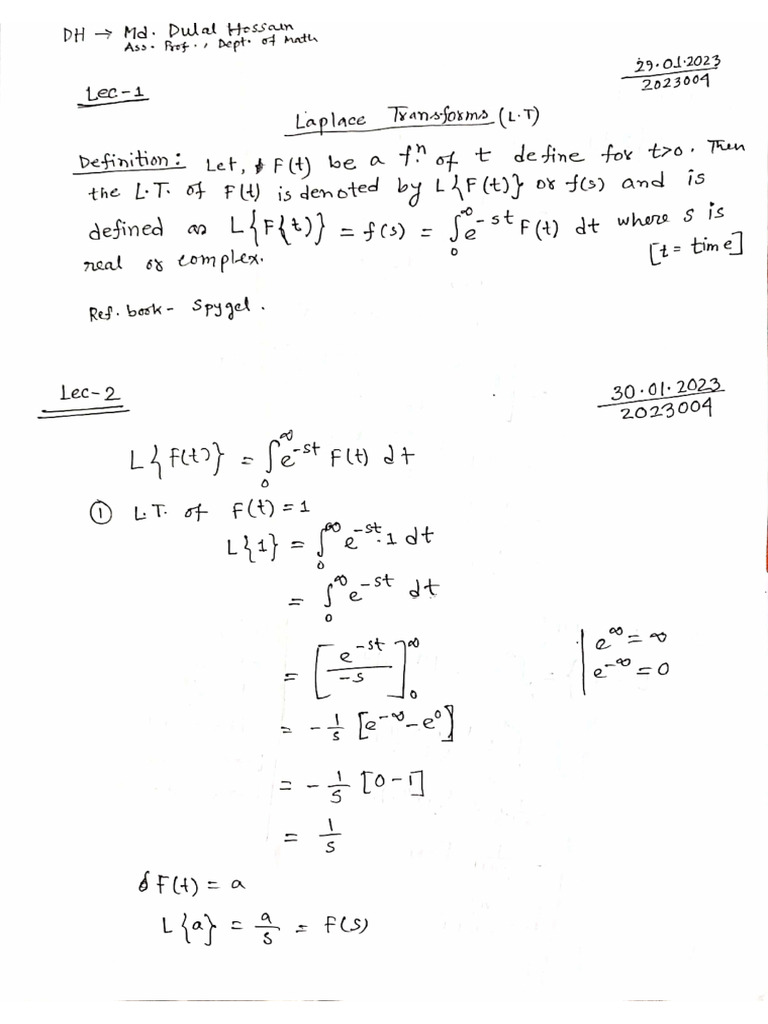 DH → Md. Dulal Hossain
Ass. Prof., Dept. of Math
29.01.2023
2023004
Lec-1
Laplace Transforms (L.T)
Definition: Let, F(t) be a f.ⁿ of t define for t>0. Then
the L.T. of F(t) is denoted by L{F(t)} or f(s) and is
defined as L{F{t)} = f(s) = ∫₀^∞ e^-st F(t) dt where s is
real or complex. [t = time]
Ref. book - Spygel.
Lec-2
30.01.2023
2023004
L{F(t)} = ∫₀^∞ e^-st F(t) dt
① L.T. of F(t) = 1
L{1} = ∫₀^∞ e^-st.1 dt
= ∫₀^∞ e^-st dt
= [e^-st / -s]₀^∞
| e^∞ = ∞
| e^-∞ = 0
= - 1/s [e^-∞ - e^0]
= - 1/s [0-1]
= 1/s
F(t) = a
L{a} = a/s = f(s)